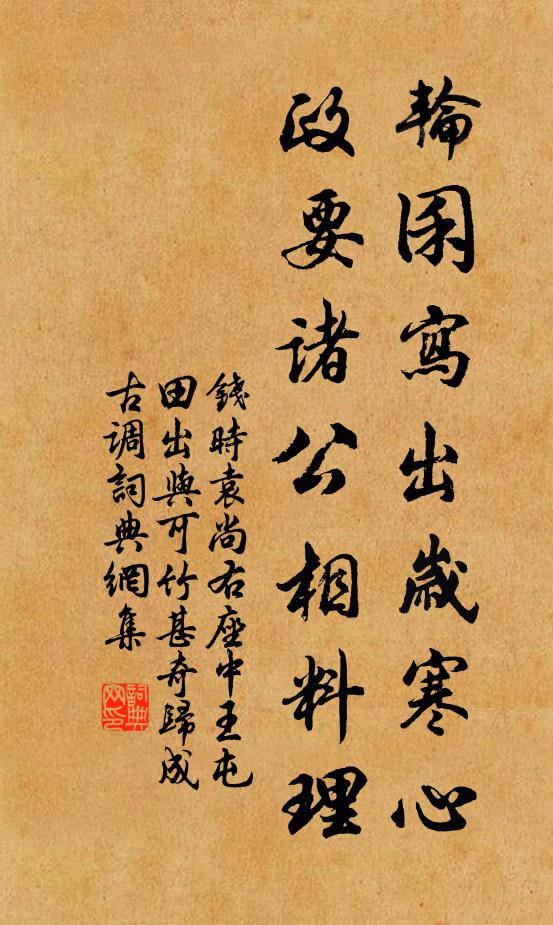 輪囷寫出歲寒心
政要諸公相料理
錢時袁尚右座中王屯
田出與可竹甚奇歸成
古調詞典網集
詞典網印